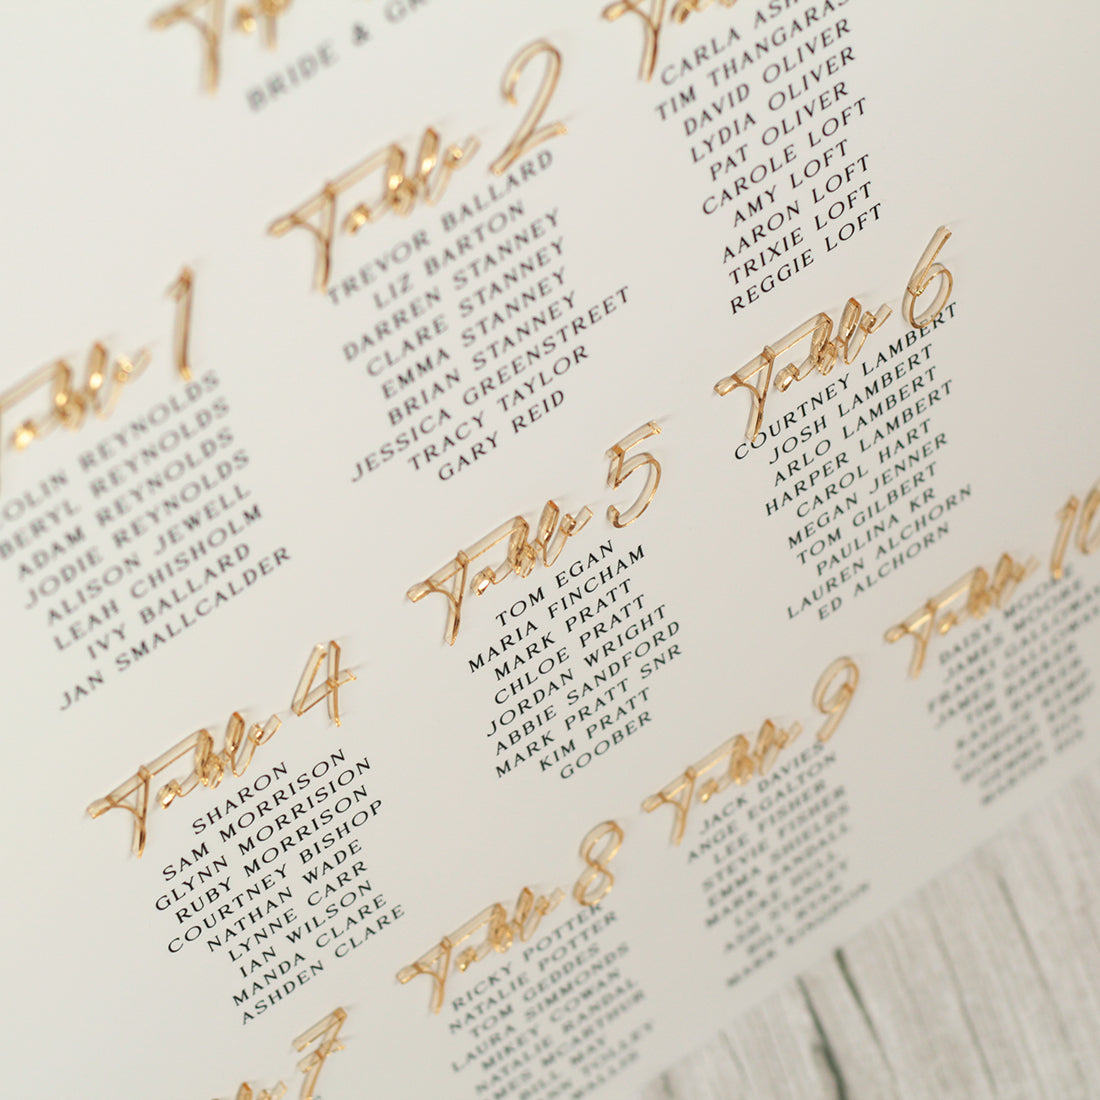 BRIDE &
Table 1
COLIN REYNOLDS
BERYL REYNOLDS
ADAM REYNOLDS
JODIE REYNOLDS
ALISON JEWELL
LEAH CHISHOLM
IVY BALLARD
JAN SMALLCALDER
Table 2
TREVOR BALLARD
LIZ BARTON
DARREN STANNEY
CLARE STANNEY
EMMA STANNEY
BRIAN STANNEY
JESSICA GREENSTREET
TRACY TAYLOR
GARY REID
CARLA ASH
TIM THANGARAS
DAVID OLIVER
LYDIA OLIVER
PAT OLIVER
CAROLE LOFT
AMY LOFT
AARON LOFT
TRIXIE LOFT
REGGIE LOFT
Table 4
SHARON
SAM MORRISON
GLYNN MORRISION
RUBY MORRISON
COURTNEY BISHOP
NATHAN WADE
LYNNE CARR
IAN WILSON
MANDA CLARE
ASHDEN CLARE
Table 5
TOM EGAN
MARIA FINCHAM
MARK PRATT
CHLOE PRATT
JORDAN WRIGHT
ABBIE SANDFORD
MARK PRATT SNR
KIM PRATT
GOOBER
Table 6
COURTNEY LAMBERT
JOSH LAMBERT
ARLO LAMBERT
HARPER LAMBERT
CAROL HART
MEGAN JENNER
TOM GILBERT
PAULINA KR
LAUREN ALCHORN
ED ALCHORN
7
Table 8
RICKY POTTER
NATALIE POTTER
TOM GEDDES
LAURA SIMMONDS
MIKEY COWAN
NATALIE RANDAL
JAMES MCARTHUR
BILL MAY
TOLLEY
Table 9
JACK DAVIES
ANGE EGALTON
LEE FISHER
STEVIE FISHER
EMMA SHIELDS
MARK RANDALL
Table 10
DAISY MOORE
JAMES MOORE
FRANKI GALLOWAY
JAMES GALLOWAY